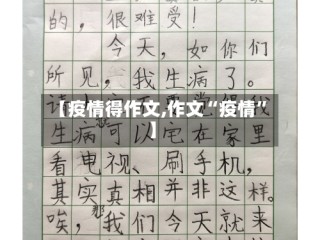 的，很难受！
今天，如你们
所见，我生病了。
【疫情得作文,作文“疫情”
】
生病可以宅在家里
看电视、刷手机，
其实真相并非这样。
那
唉，我们今天就来